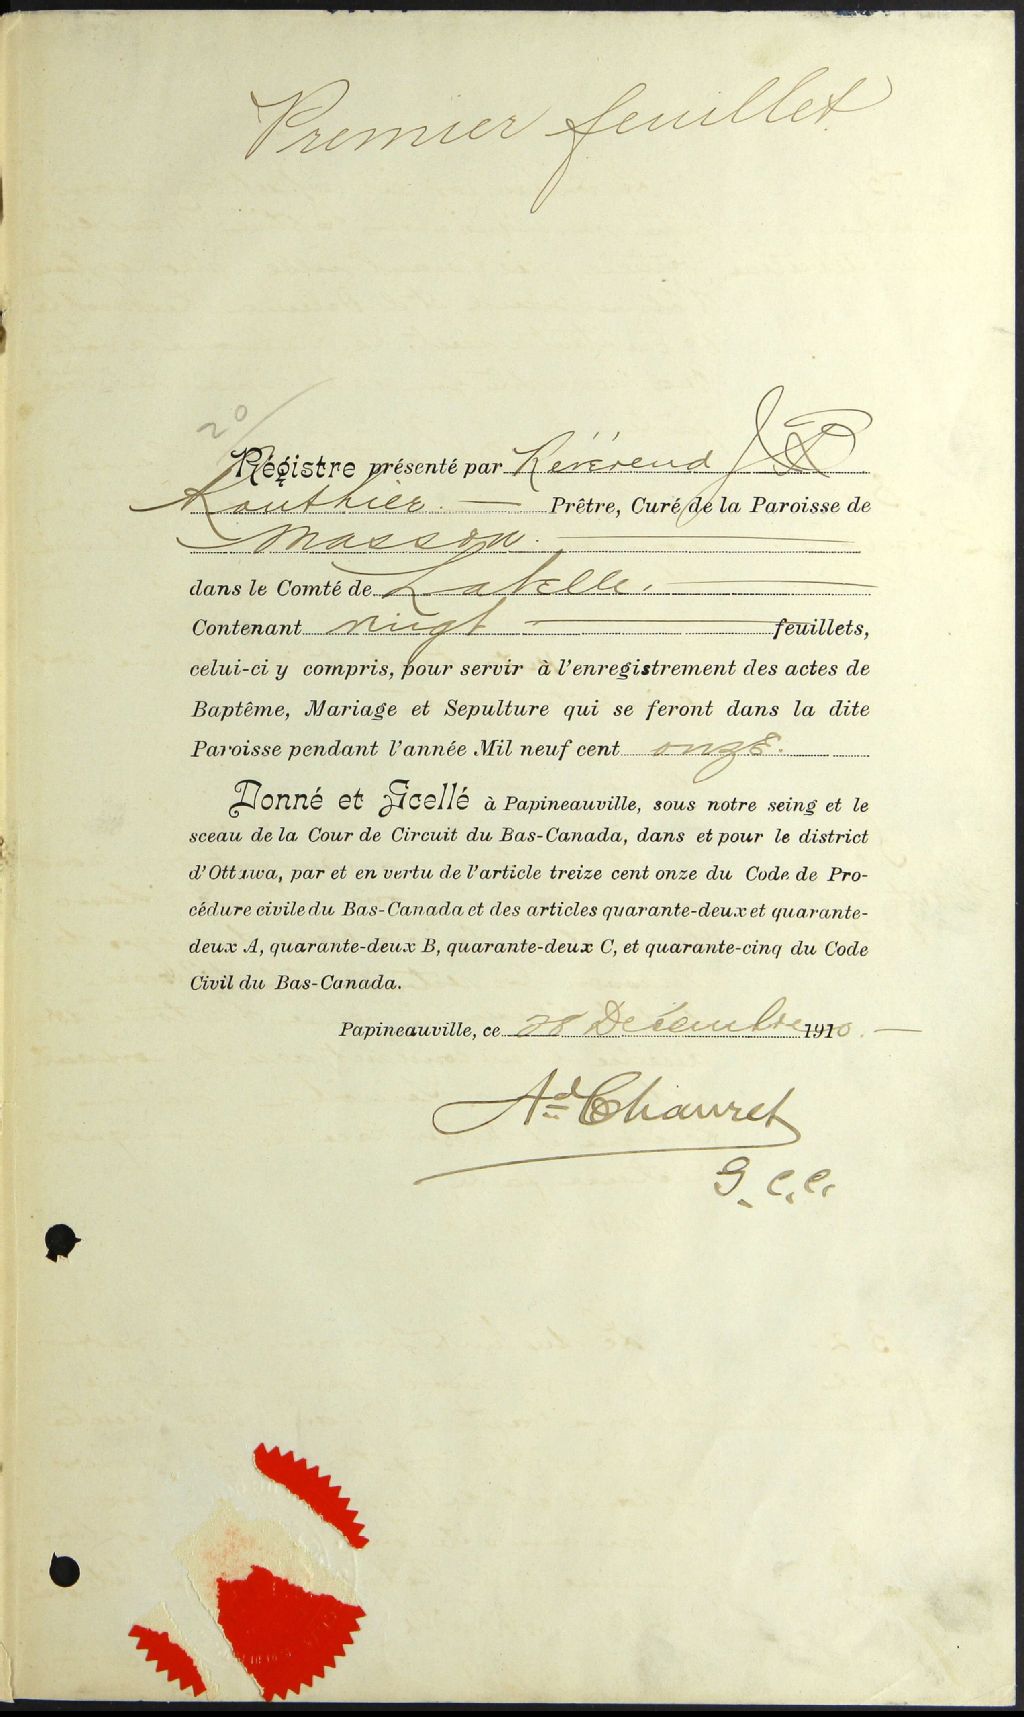 Premier feuillet
20
Régistre présenté par Révérend J R
Routhier. Prêtre, Curé de la Paroisse de
Masson.
dans le Comté de Labelle.
Contenant vingt feuillets,
celui-ci y compris, pour servir à l'enregistrement des actes de
Baptême, Mariage et Sepulture qui se feront dans la dite
Paroisse pendant l'année Mil neuf cent onze.
Donné et Scellé à Papineauville, sous notre seing et le
sceau de la Cour de Circuit du Bas-Canada, dans et pour le district
d'Ottawa, par et en vertu de l'article treize cent onze du Code de Pro-
cédure civile du Bas-Canada et des articles quarante-deux et quarante-
deux A, quarante-deux B, quarante-deux C, et quarante-cinq du Code
Civil du Bas-Canada.
Papineauville, ce 28 Décembre 1910.
Ad Chauret
G. C. C.